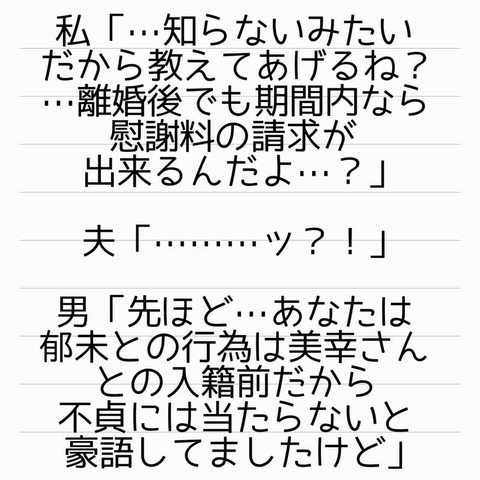 私「…知らないみたい
だから教えてあげるね?
…離婚後でも期間内なら
慰謝料の請求が
出来るんだよ…?」
夫「………ッ?!」
男「先ほど…あなたは
郁未との行為は美幸さん
との入籍前だから
不貞には当たらないと
豪語してましたけど」